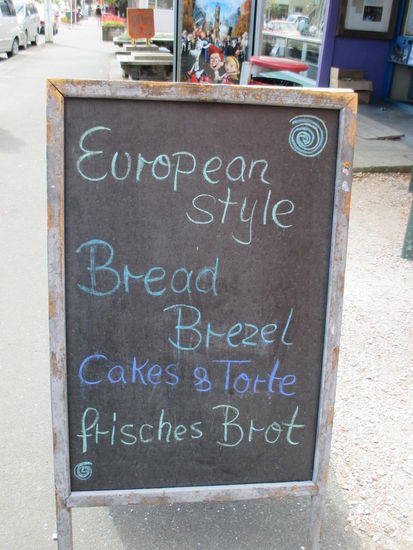 European
style
Bread
Brezel
Cakes & Torte
frisches Brot